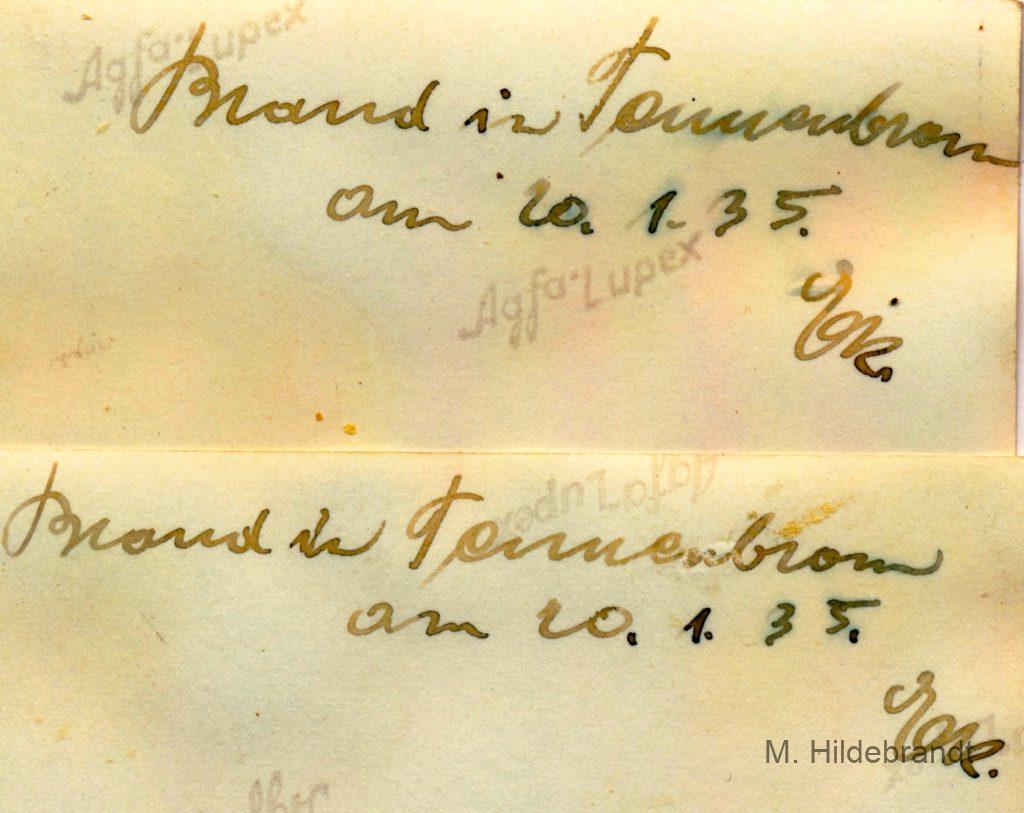 Agfa-Lupex
Brand in Tennenbronn
am 20. 1. 35.
Agfa-Lupex
Agfa-Lupex
Brand in Tennenbronn
am 20. 1. 35.
M. Hildebrandt
Agfa